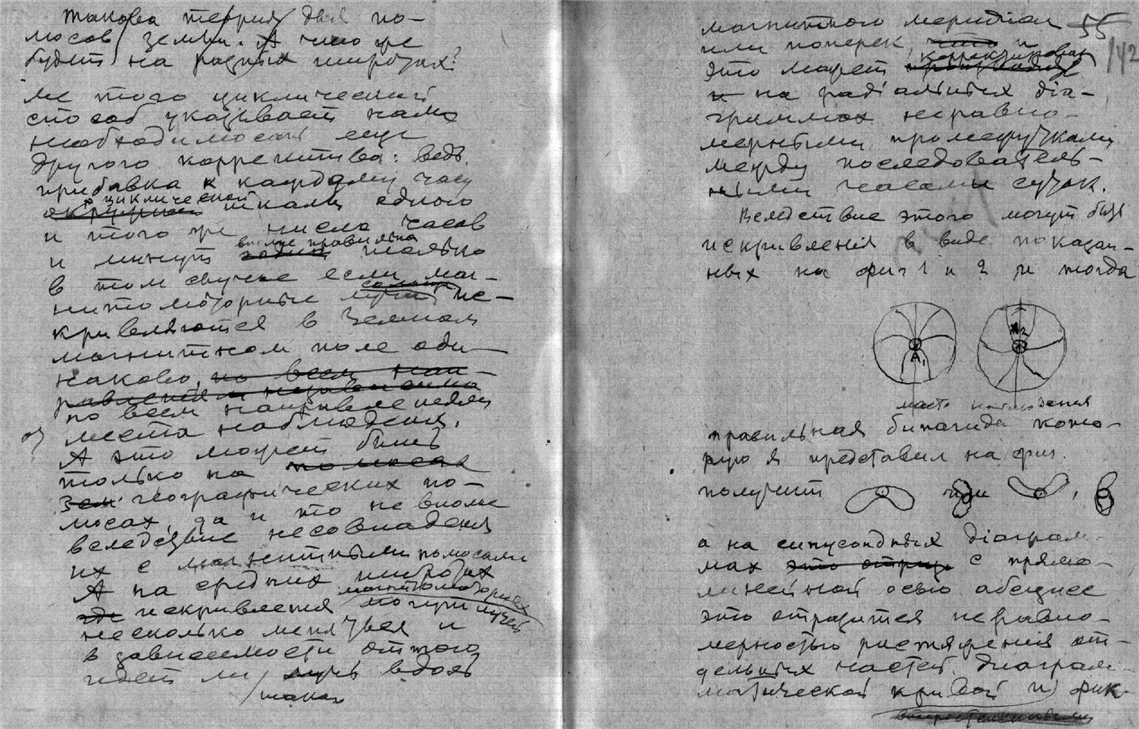 Такова теория для по-
люсов земли. А что же
будет на разных широтах?
способ указывает нам
необходимость еще
другого корректива: ведь
прибавка к каждому часу
циклической шкалы одного
и того же числа часов
и минут вполне правильна только
в том случае если маг-
нитомоторные лучи солнца ис-
кривляются в Земном
магнитном поле оди-
наково, по всем нап-
равлениям и независимо
по всем направлениям
от места наблюдения.
А это может быть
только на полюсах
Зем географических по-
люсах, да и то не вполне
вследствие несовпадения
их с магнитными полюсами
А на средних широтах
искривления магнитомоторных лучей могут
несколько меняться и
в зависимости от того
идет ли такой луч вдоль
55
142
магнитного меридиана
или поперек, что и
это может
и на радіальных діа-
граммах неравно-
мерными промежутками
между последователь-
ными часами суток.
Вследствие этого могут быть
искривления в виде показан-
ных на фиг 1 и 2 и тогда
A1
A2
место наблюдения
правильная бипагида кото-
рую я представил на фиг.
получит или ,
а на синусоидных діаграм-
мах это отраз с прямо-
линейной осью абсцисс
это отразится неравно-
мерностью растяжения от-
дельных частей діаграм-
матической кривой и фик-